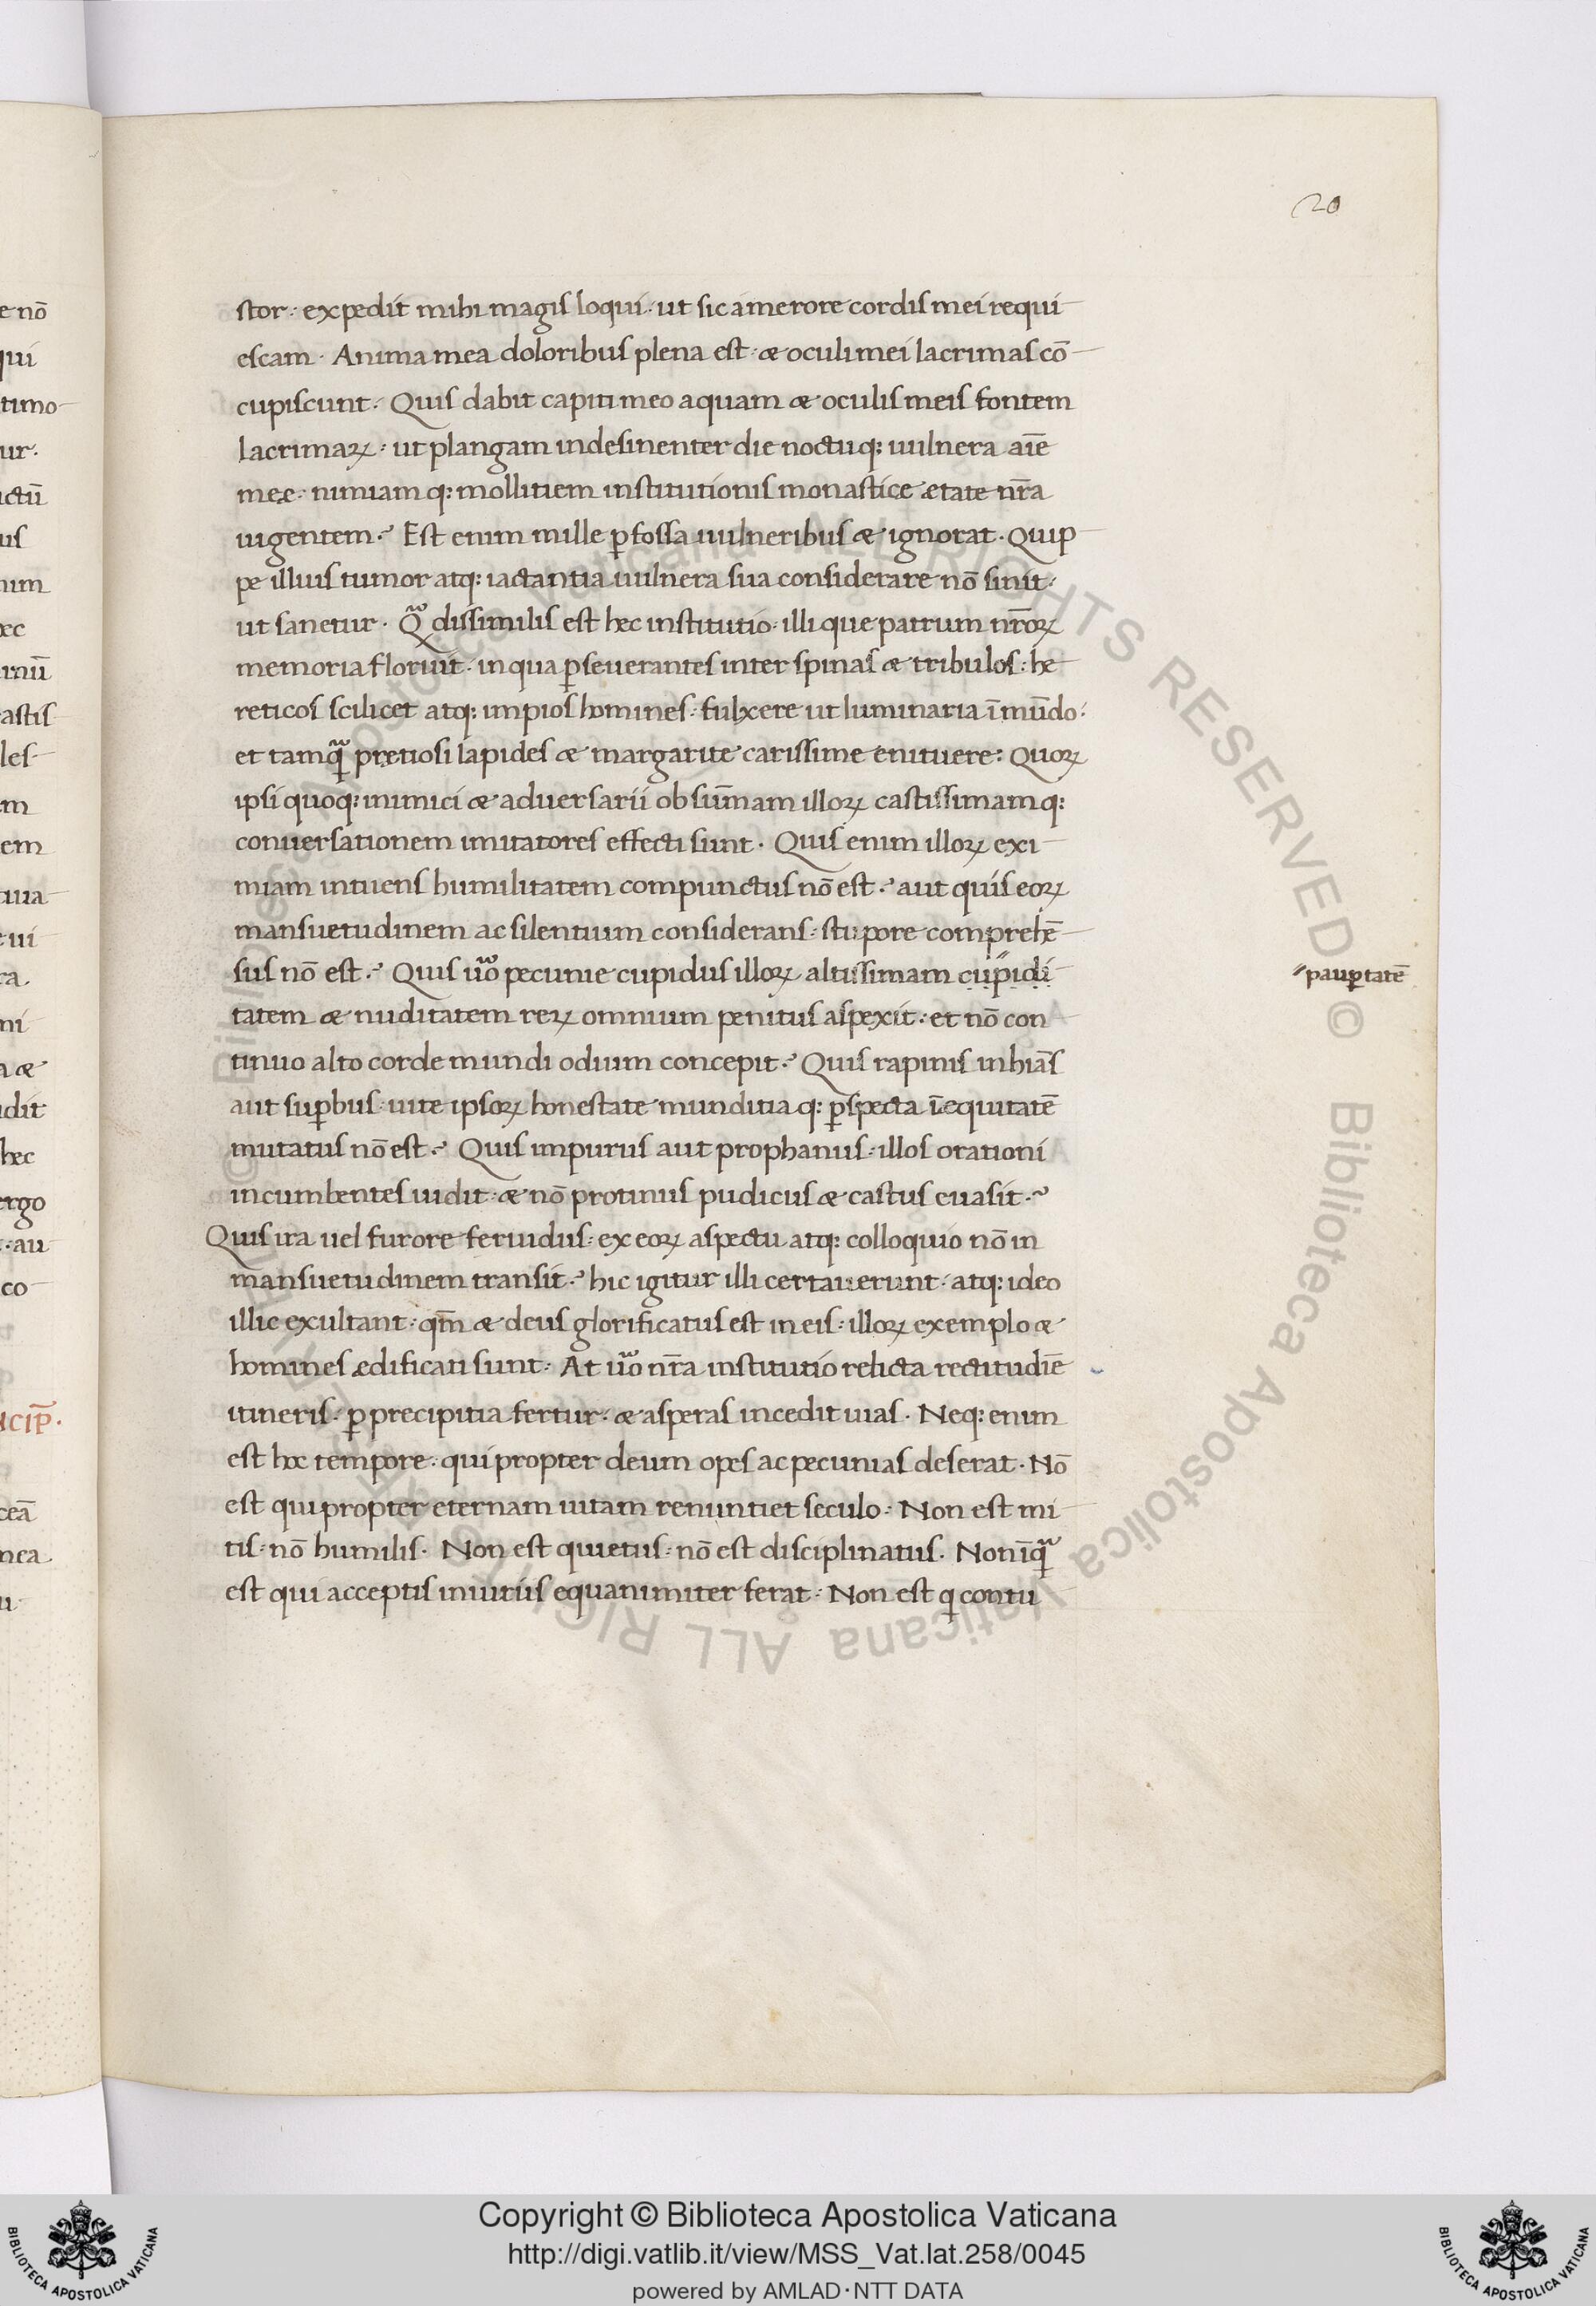 20
stor: expedit mihi magis loqui· ut sic a merore cordis mei requi
escam· Anima mea doloribus plena est: & oculi mei lacrimas cō
cupiscunt· Quis dabit capiti meo aquam & oculis meis fontem
lacrimaꝝ: ut plangam indesinenter die noctuq; uulnera aīe
meę: nimiam q; mollitiem institutionis monasticę etate nr̄a
uigentem? Est enim mille ꝑfossa uulneribus & ignorat· Quip
pe illius tumor atq; iactantia uulnera sua considerare nō sinit:
ut sanetur· Qͣ dissimilis est hec institutio· illi que patrum nr̄oꝝ
memoria floruit· in qua ꝑseuerantes inter spinas & tribulos: he
reticos scilicet atq; impios homines· fulxere ut luminaria ī mūdo:
et tamqͣ pretiosi lapides & margarite carissime enituere: Quoꝝ
ipsi quoq; inimici & aduersarii ob sūmam illoꝝ castissimamq;
conuersationem imitatores effecti sunt· Quis enim illoꝝ exi
miam intuens humilitatem compunctus nō est? aut quis eoꝝ
mansuetudinem ac silentium considerans· stupore comprehē
sus nō est? Quis uͦo pecunie cupidus illoꝝ altissimam cupidi
〃pauꝑtatē
tatem & nuditatem reꝝ omnium penitus aspexit: et nō con
tinuo alto corde mundi odium concepit? Quis rapinis inhiās
aut suꝑbus· uite ipsoꝝ honestate munditia q; ꝑspecta ī equitatē
mutatus nō est? Quis impurus aut prophanus· illos orationi
incumbentes uidit· & nō protinus pudicus & castus euasit?
Quis ira uel furore feruidus· ex eoꝝ aspectu atq; colloquio nō in
mansuetudinem transit? hic igitur illi certauerunt· atq; ideo
illic exultant· qm̄ & deus glorificatus est in eis: illoꝝ exemplo &
homines ædificati sunt: At uͦo nr̄a institutio relicta rectitudīe
itineris· ꝑ precipitia fertur· & asperas incedit uias· Neq; enim
est hoc tempore· qui propter deum opes ac pecunias deserat· Nō
est qui propter eternam uitam renuntiet seculo· Non est mi
tis· nō humilis· Non est quietus· nō est disciplinatus· Non īqͣ
est qui acceptis iniuriis equanimiter ferat· Non est q contu
Copyright © Biblioteca Apostolica Vaticana
http://digi.vatlib.it/view/MSS_Vat.lat.258/0045
powered by AMLAD·NTT DATA